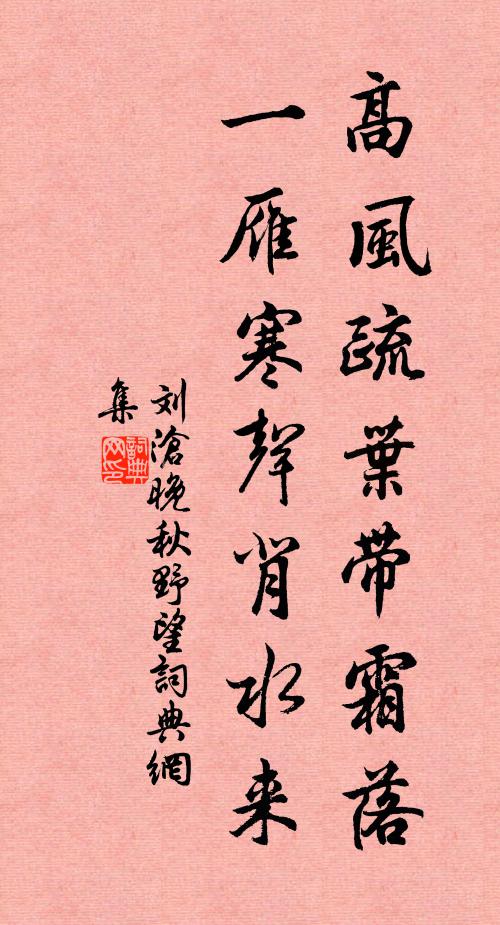 高風疏葉帶霜落
一雁寒聲背水来
刘滄晚秋野望詞典網
集
詞典网印